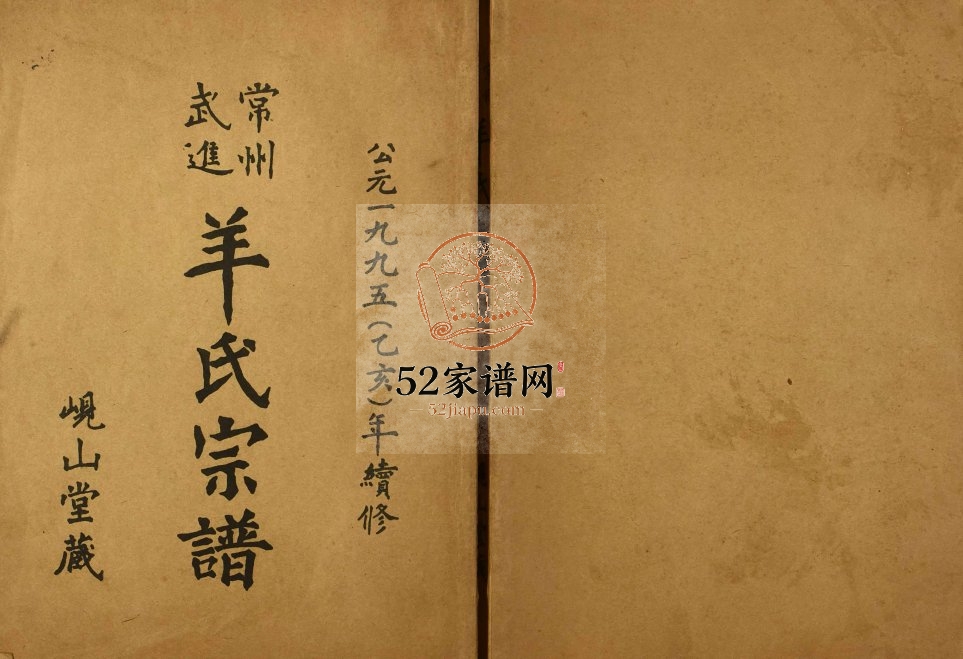 公元一九九五(乙亥)年續修
常州
武進
羊氏宗譜
峴山堂藏
52家谱网
52jiapu.com